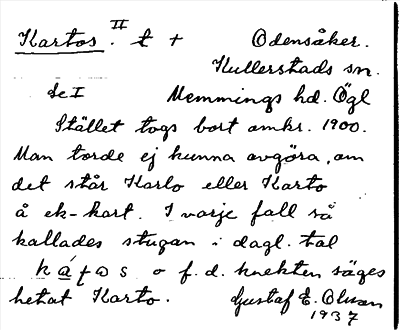 Kartos. II t + Odensåker.
Kullerstads sn.
Se I Memmings hd. Ögl
Stället togs bort omkr. 1900.
Man torde ej kunna avgöra, om
det står Karlo eller Karto
å ek-kart. I varje fall så
kallades stugan i dagl. tal
o f. d. knekten säges
hetat Karto. Gustaf E. Olsson
1937